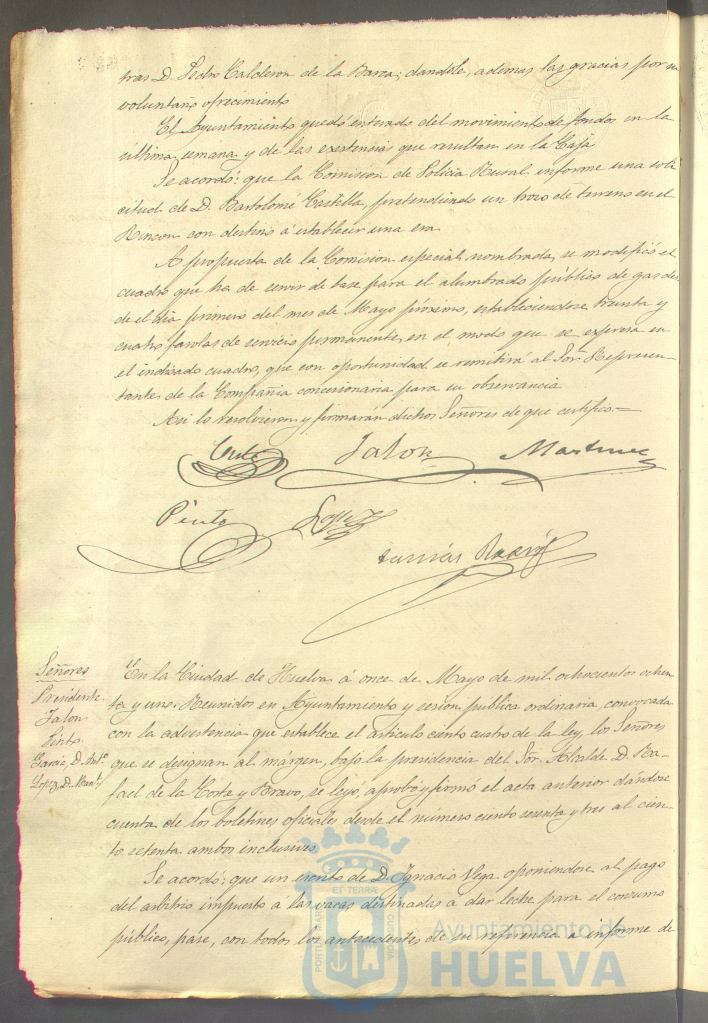 tras D. Pedro Calderon de la Barca; dandole, ademas las gracias por su
voluntario ofrecimiento
El Ayuntamiento quedó enterado del movimiento de fondos en la
última semana y de las existencias que resultan en la Caja
Se acordó: que la Comision de Policia Rural informe una soli
citud de D. Bartolomé Castilla, pretendiendo un trozo de terreno en el
Rincon con destino á establecer una era
A propuesta de la Comision especial nombrada, se modificó el
cuadro que ha de servir de base para el alumbrado público de gas des
de el dia primero del mes de Mayo próximo, estableciendose treinta y
cuatro farolas de servicio permanente, en el modo que se expresa en
el indicado cuadro, que con oportunidad se remitirá al Sor. Represen-
tante de la Compañia concesionaria para su observancia
Asi lo resolvieron y firmarán dichos Señores de que certifico.=
Jalon Martinez
Pinto Lopez
Señores
Presidente
Jalon
Pinto
Garcia, D. Anto
Lopez, D. Manl
En la Ciudad de Huelva á once de Mayo de mil ochocientos ochen
ta y uno: Reunidos en Ayuntamiento y sesion pública ordinaria, convocada
con la advertencia que establece el articulo ciento cuatro de la ley, los Señores
que se designan al márgen, bajo la presidencia del Sor. Alcalde D. Ra-
fael de la Corte y Bravo, se leyó, aprobó y firmó el acta anterior dándose
cuenta de los boletines oficiales desde el número ciento sesenta y tres al cien-
to setenta ambos inclusives.
Se acordó: que un escrito de D. Ignacio Vega oponiendose al pago
del arbitrio impuesto a las vacas destinadas á dar leche para el consumo
público, pase, con todos los antecedentes de su referencia a informe de
PORTUS MARIS ET TERRAE CUSTODIA
Ayuntamiento de
HUELVA